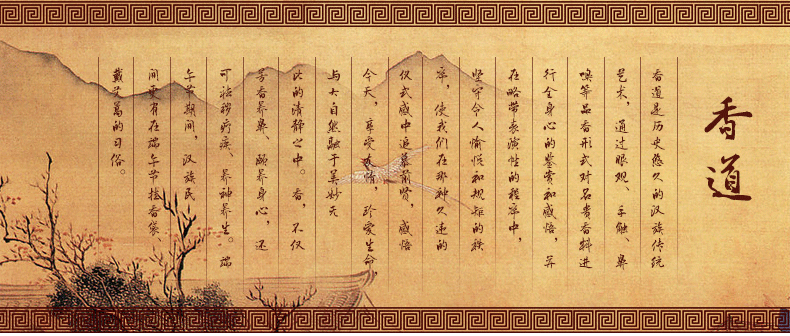 香道
香道是历史悠久的汉族传统
艺术，通过眼观、手触、鼻
嗅等品香形式对名贵香料进
行全身心的鉴赏和感悟，并
在略带表演性的程序中，
坚守令人愉悦和规矩的秩
序，使我们在那种久违的
仪式感中追慕前贤，感悟
今天，享受友情，珍爱生命，
与大自然融于美妙无
比的清静之中。香，不仅
芳香养鼻、颐养身心，还
可祛秽疗疾、养神养生。端
午节期间，汉族民
间更有在端午节挂香袋、
戴艾蒿的习俗。